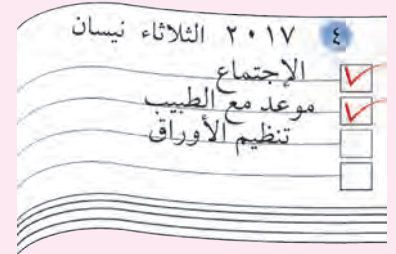 ٤ ٢٠١٧ الثلاثاء نيسان
الإجتماع
موعد مع الطبيب
تنظيم الأوراق